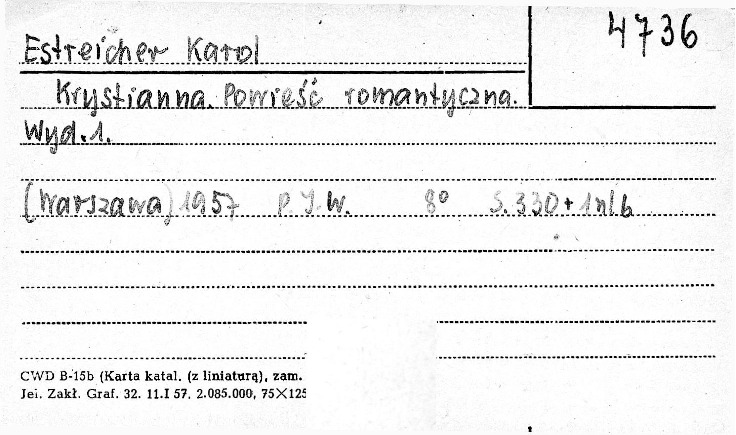 4736
Estreicher Karol
Krystianna. Powieść romantyczna.
Wyd. 1.
(Warszawa) 1957 P.I.W. 8° S. 330 + 1 nlb
CWD B-15b (Karta katal. (z liniaturą), zam.
Jel. Zakł. Graf. 32. 11.I 57. 2.085.000, 75×125